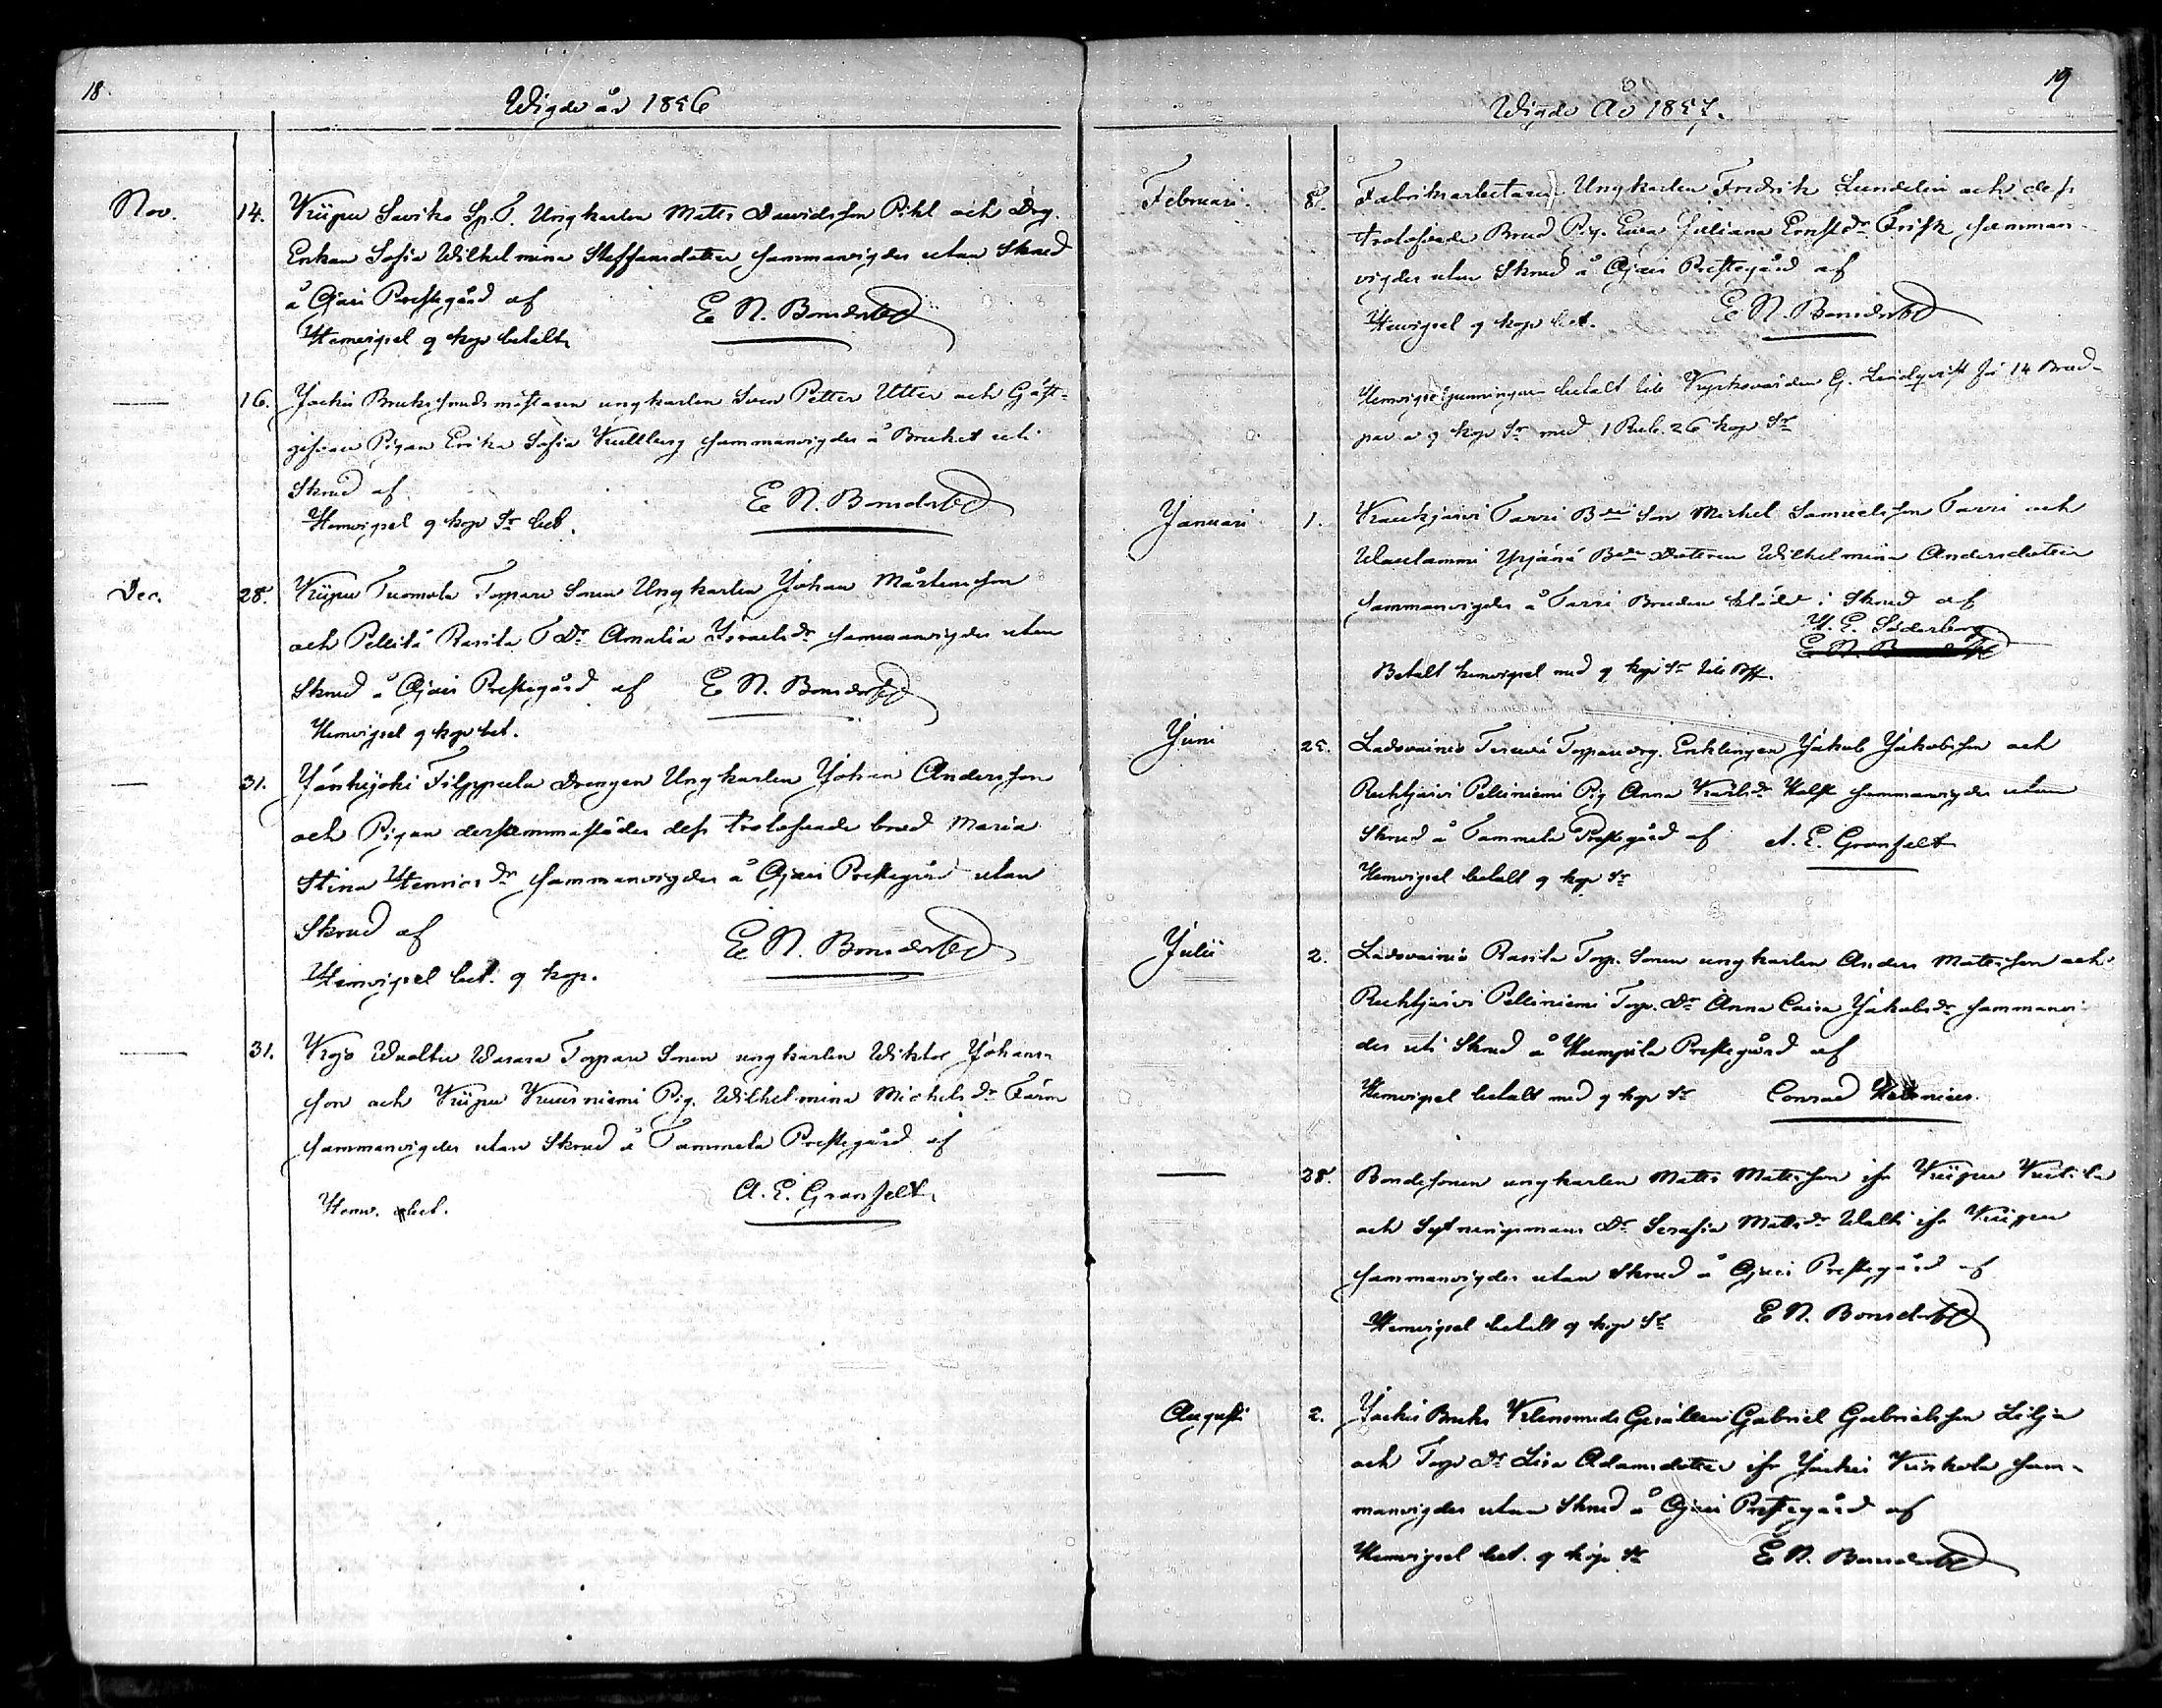 18.
Wigde år 1856
Nov. 14. Kiipu Saviko Sp. T. Ungkarlen Matts Davidsson Pihl och Drg.
Enkan Sofia Wilhelmina Steffansdotter sammanvigdes utan Skrud
å Ojais Prestegård af E N. Bonsdorff
Hemvigsel 9 kop betalt
— 16. Jockis Bruks smedsmästaren ungkarlen Sven Petter Utter och Gäst-
gifvare Pigan Erika Sofia Kullberg sammanvigdes å Bruket uti
Skrud af E N. Bonsdorff
Hemvigsel 9 kop Sr bet.
Dec. 28. Kiipu Tuomola Torpare Sonen Ungkarlen Johan Mårtensson
och Pellilä Rasila T Dr Amalia Israelsdr sammanvigdes utan
Skrud å Ojais Prestegård af E N. Bonsdorff
Hemvigsel 9 kop bet.
— 31. Jänhijoki Filppula Drengen Ungkarlen Johan Andersson
och Pigan dersammastädes dess trolofvade brud Maria
Stina Henricsdr sammanvigdes å Ojais Prestegård utan
Skrud af E N. Bonsdorff
Hemvigsel bet. 9 kop.
— 31. Kojo Uvaltu Warara Torpare Sonen ungkarlen Wiktor Johans-
son och Kiipu Kuusniemi Pig. Wilhelmina Michelsdr Färm
sammanvigdes utan Skrud å Tammela Prestegård af
Hemv. bet. A. E. Granfelt
19
Wigde År 1857.
Februari 8. Fabriksarbetaren Ungkarlen Fredrik Lundelin och dess
trolofvade Brud Pig. Eva Juliana Ernstdr Frisk samman-
vigdes utan Skrud å Ojais Prestegård af
Hemvigsel 9 kop bet. E N. Bonsdorff
Hemvigselpenningar betalt till Kyrkovärden G. Lindqvist för 14 Brud-
par a 9 kop Sr med 1 Rub. 26 kop Sr
Januari 1. Kaukjärvi Tarri Bde Son Michel Samuelsson Tarri och
Ulaulammi Yrjänä Bde Dotteren Wilhelmina Andersdotter
sammanvigdes å Tarri Bruden klädd i Skrud af
H. E. Söderberg
E N. Bonsdorff
Betalt hemvigsel med 9 kop Sr till Bff.
Juni 25. Ladovainio Terevä Torparedrg. Enklingen Jakob Jakobsson och
Ruchjärvi Pelliniemi Pig Anna Karlsdr Half sammanvigdes utan
Skrud å Tammela Prestegård af A. E. Granfelt
Hemvigsel betalt 9 kop Sr
Julii 2. Ladovainio Rasila Torp. Sonen ungkarlen Anders Matsson och
Ruchjärvi Pelliniemi Torp. Dr Anna Caisa Jakobsdr sammanvi-
des uti Skrud å Humpila Prestegård af
Hemvigsel betalt med 9 kop Sr Conrad Helenius.
— 28. Bondesonen ungkarlen Matts Mattsson ifr Kiipu Kutila
och Sytningsmans Dr Serafia Mattsdr Ulalti ifr Kiipu
sammanvigdes utan Skrud å Ojais Prestegård af
Hemvigsel betalt 9 kop Sr E N. Bonsdorff
Augusti 2. Jockis Bruks Klensmeds Gesällen Gabriel Gabrielsson Lilja
och Torp Dr Lisa Adamsdotter ifr Jockis Kuiskola sam-
manvigdes utan Skrud å Ojais Prestegård af
Hemvigsel bet. 9 kop Sr E N. Bonsdorff